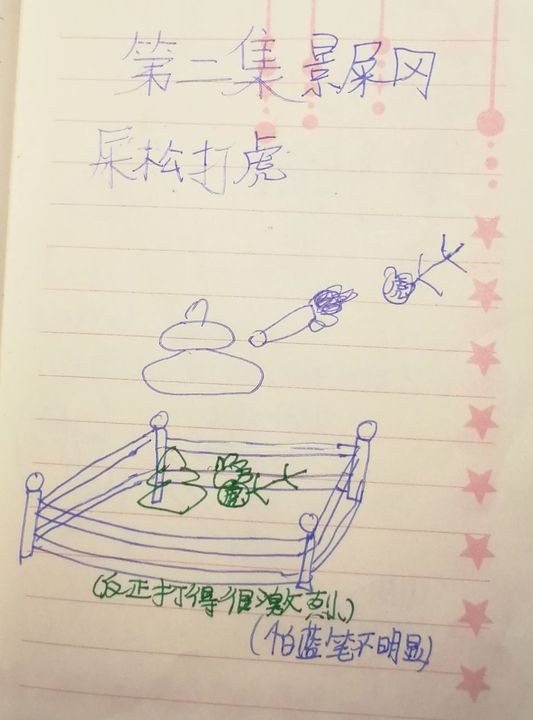 第二集景屎冈
屎松打虎
虎
虎
(反正打得很激烈)
(怕蓝笔不明显)